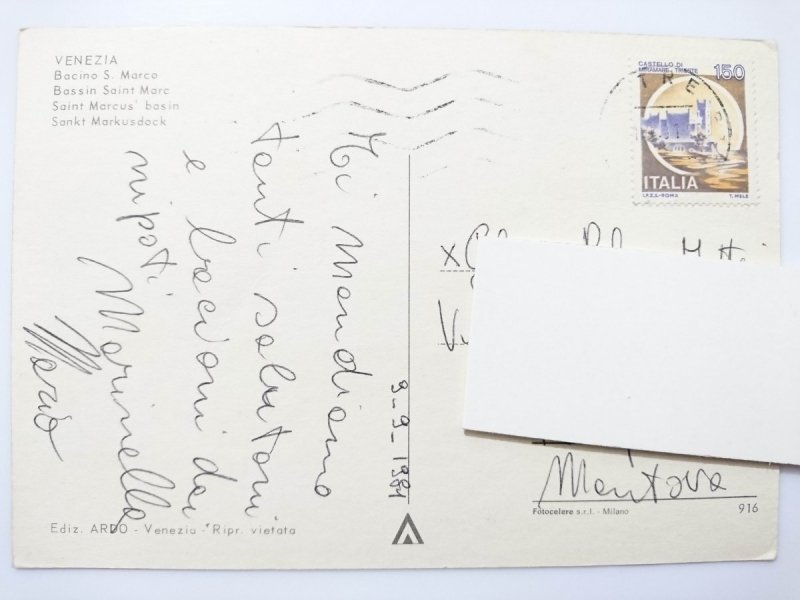 VENEZIA
Bacino S. Marco
Bassin Saint Marc
Saint Marcus' basin
Sankt Markusdock
Ti Mandiamo
tanti salutoni
e bacioni dai
nipoti
Marinella
Mario
9-9-1981
CASTELLO DI
MIRAMARE-TRIESTE
150
ITALIA
I.P.Z.S.-ROMA T. MELE
x
Mantova
Ediz. ARDO - Venezia - Ripr. vietata
Fotocelere s.r.l. - Milano
916